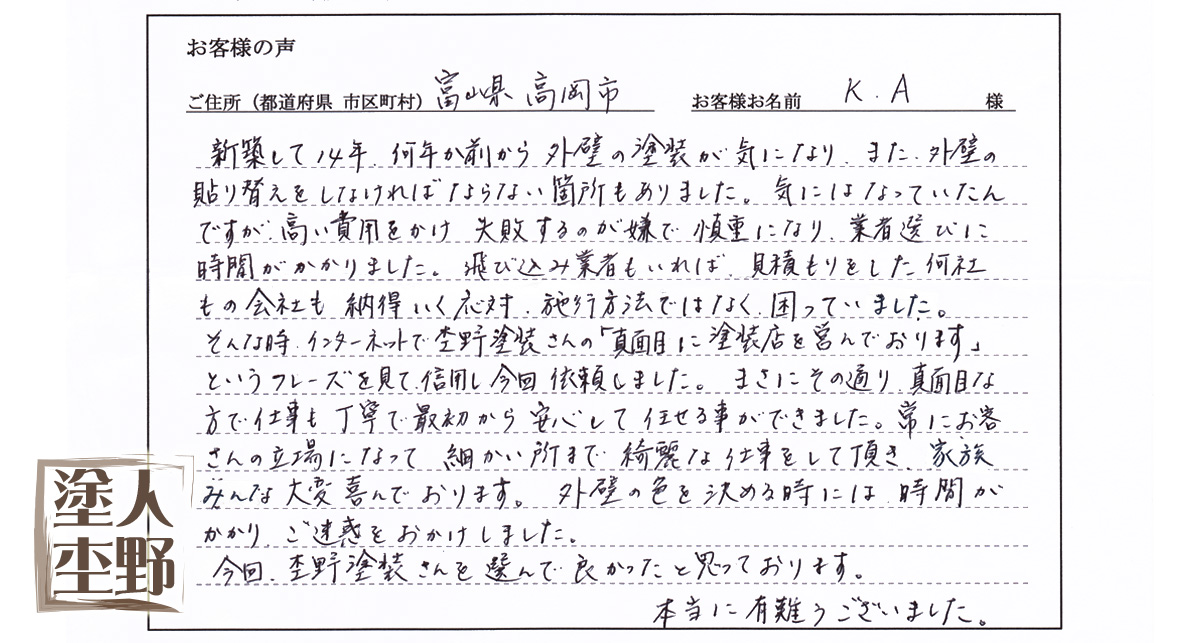 お客様の声
ご住所（都道府県 市区町村） 富山県 高岡市 お客様お名前 K.A 様
新築して14年、何年か前から 外壁の塗装が気になり、また、外壁の
貼り替えをしなければならない箇所もありました。気にはなっていたん
ですが、高い費用をかけ 失敗するのが嫌で 慎重になり、業者選びに
時間がかかりました。飛び込み業者もいれば、見積もりをした何社
もの会社も 納得いく応対、施行方法ではなく、困っていました。
そんな時、インターネットで杢野塗装さんの「真面目に塗装店を営んでおります」
というフレーズを見て、信用し今回 依頼しました。まさにその通り、真面目な
方で仕事も 丁寧で最初から 安心して 任せる事ができました。常にお客
さんの立場になって 細かい所まで 綺麗な仕事をして頂き、家族
みんな大変喜んでおります。 外壁の色を決める時には、時間が
かかり、ご迷惑をおかけしました。
今回、杢野塗装さんを選んで良かったと思っております。
本当に有難うございました。
塗人
杢野